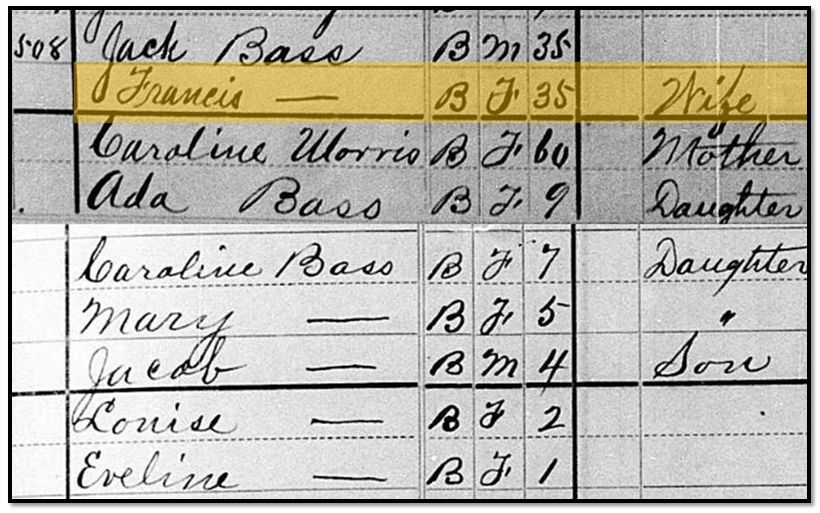 508 Jack Bass B M 35
Francis — B F 35 Wife
Caroline Morris B F 60 Mother
Ada Bass B F 9 Daughter
Caroline Bass B F 7 Daughter
Mary — B F 5 "
Jacob — B M 4 Son
Louise — B F 2
Eveline — B F 1